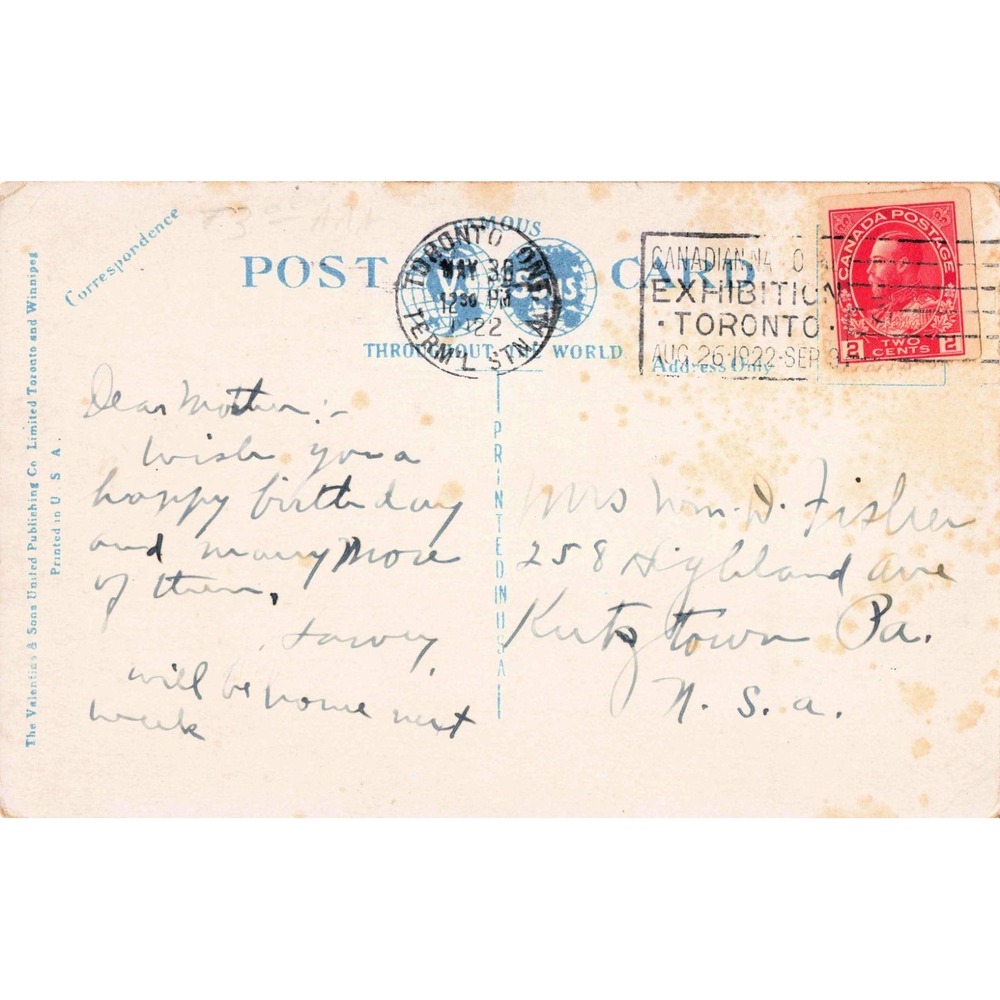 Correspondence
POST CARD
FAMOUS
THROUGHOUT THE WORLD
TORONTO ONT.
MAY 30
12 30 PM
1922
TERM'L STN. A
CANADIAN NATIONAL
EXHIBITION
· TORONTO ·
AUG. 26·1922·SEP. 9
CANADA POSTAGE
2 TWO CENTS 2
Address Only
Dear Mother:-
Wish you a
happy birthday
and many more
of them,
will be home next
week
PRINTED IN USA
Mrs Wm. D. Fisher
258 Highland ave
Kutztown Pa.
U. S. a.
The Valentine & Sons United Publishing Co. Limited Toronto and Winnipeg
Printed in U S A.